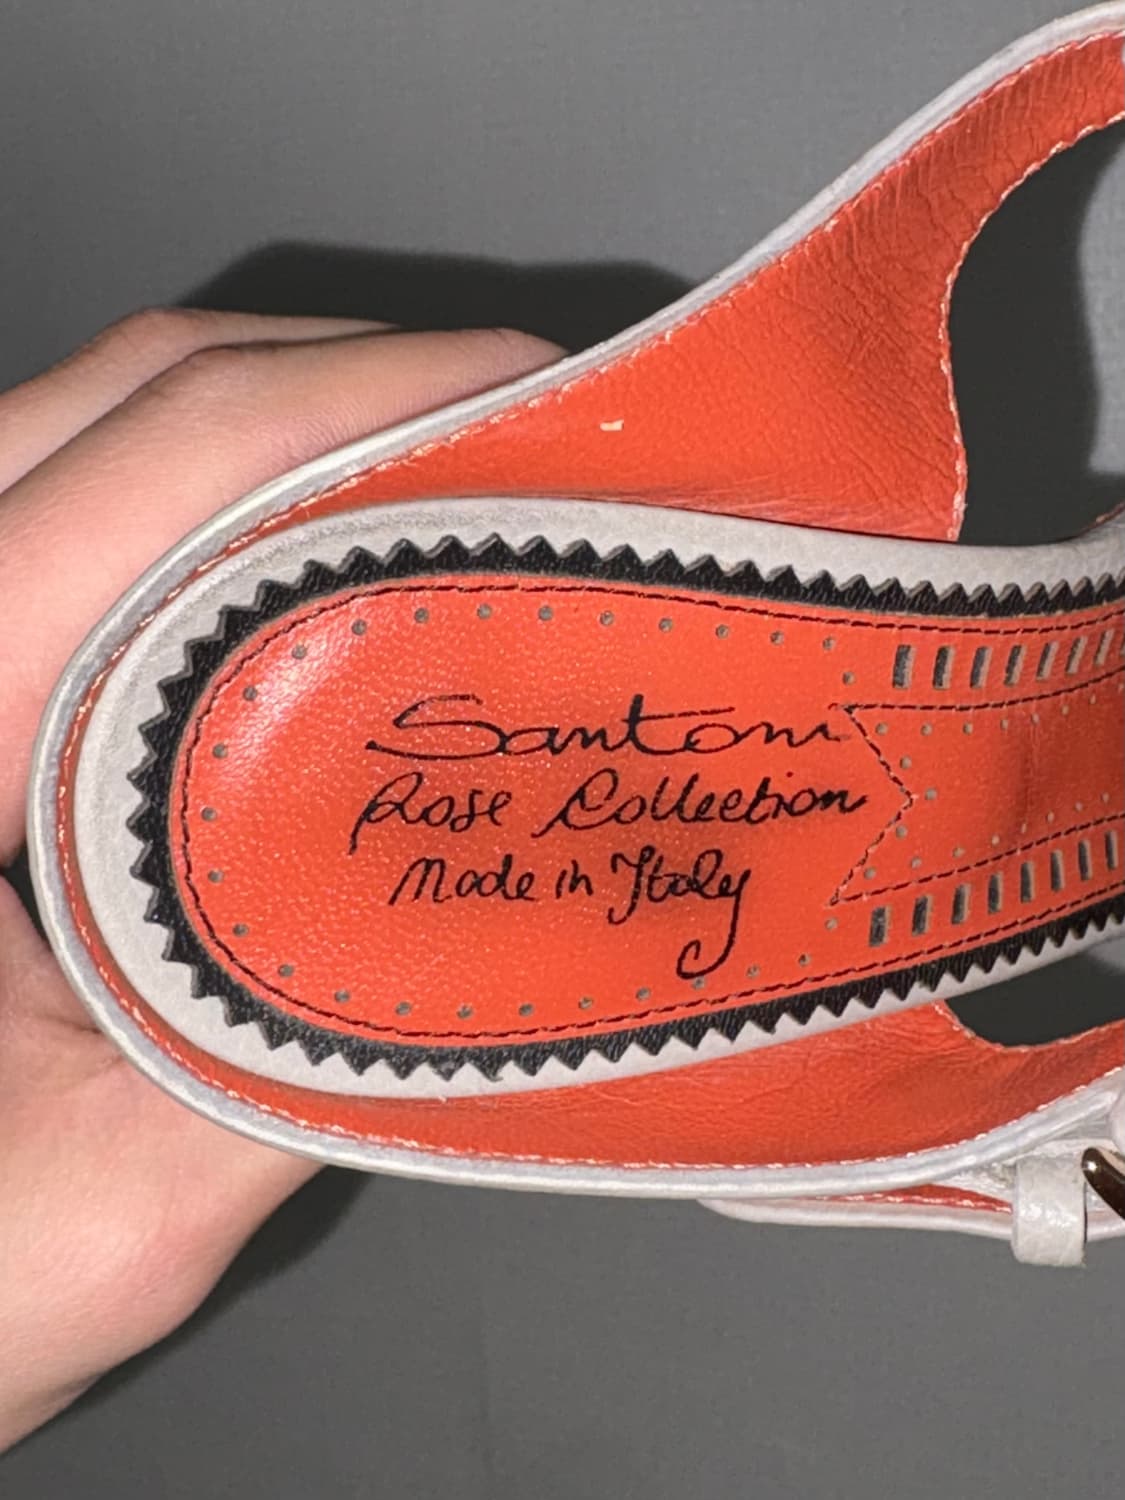 Santoni
Rose Collection
Made in Italy